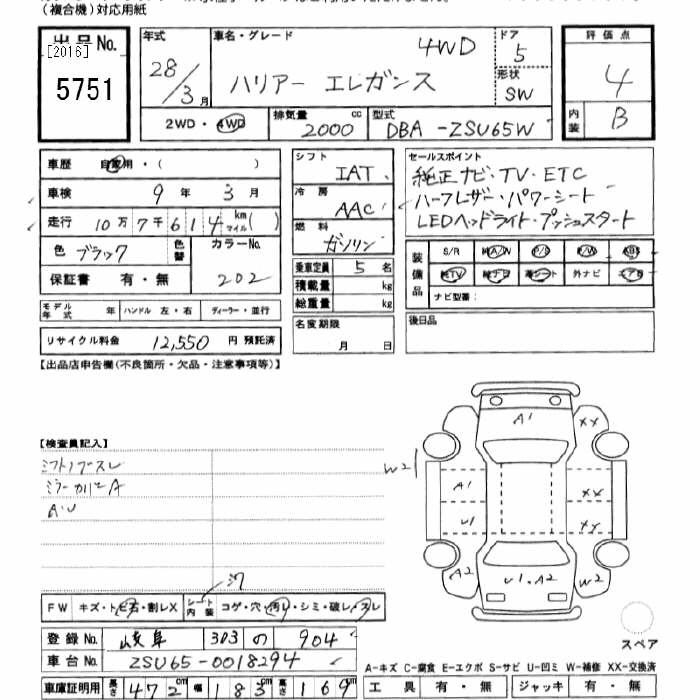 （複合機）対応用紙
出品No.
[2016]
5751
年式
28/3月
車名・グレード
4WD
ハリアー エレガンス
ドア
5
形状
SW
評価点
4
内装
B
2WD・4WD
排気量
2000 cc
型式
DBA-ZSU65W
車歴 自家用・( )
車検 9年 3月
走行 10万7千614 km マイル( )
色 ブラック 色替
カラーNo. 202
保証書 有・無
シフト
IAT
冷房
AAC
燃料
ガソリン
乗車定員 5名
積載量 kg
総重量 kg
セールスポイント
純正ナビ・TV・ETC
ハーフレザー・パワーシート
LEDヘッドライト・プッシュスタート
装備品
S/R 純A/W P/S P/W ABS
純TV 純ナビ 革シート 外ナビ エアB
ナビ型番：
モデル年式 年 ハンドル 左・右 ディーラー・並行
リサイクル料金 12,550円 預託済
名変期限
月 日
後日品
【出品店申告欄(不良箇所・欠品・注意事項等)】
【検査員記入】
A1
XX
XX
XY
W2
A1
U1
A2
U1.A2
W2
FW キズ・トビ石・割レX シート内装 コゲ・穴・汚レ・シミ・破レ・スレ
登録No. 岐阜 303 の 904
車台No. ZSU65-0018294
車庫証明用 長さ 472cm 幅 183cm 高さ 169cm
スペア
A-キズ C-腐食 E-エクボ S-サビ U-凹ミ W-補修 XX-交換済
工具 有・無 ジャッキ 有・無